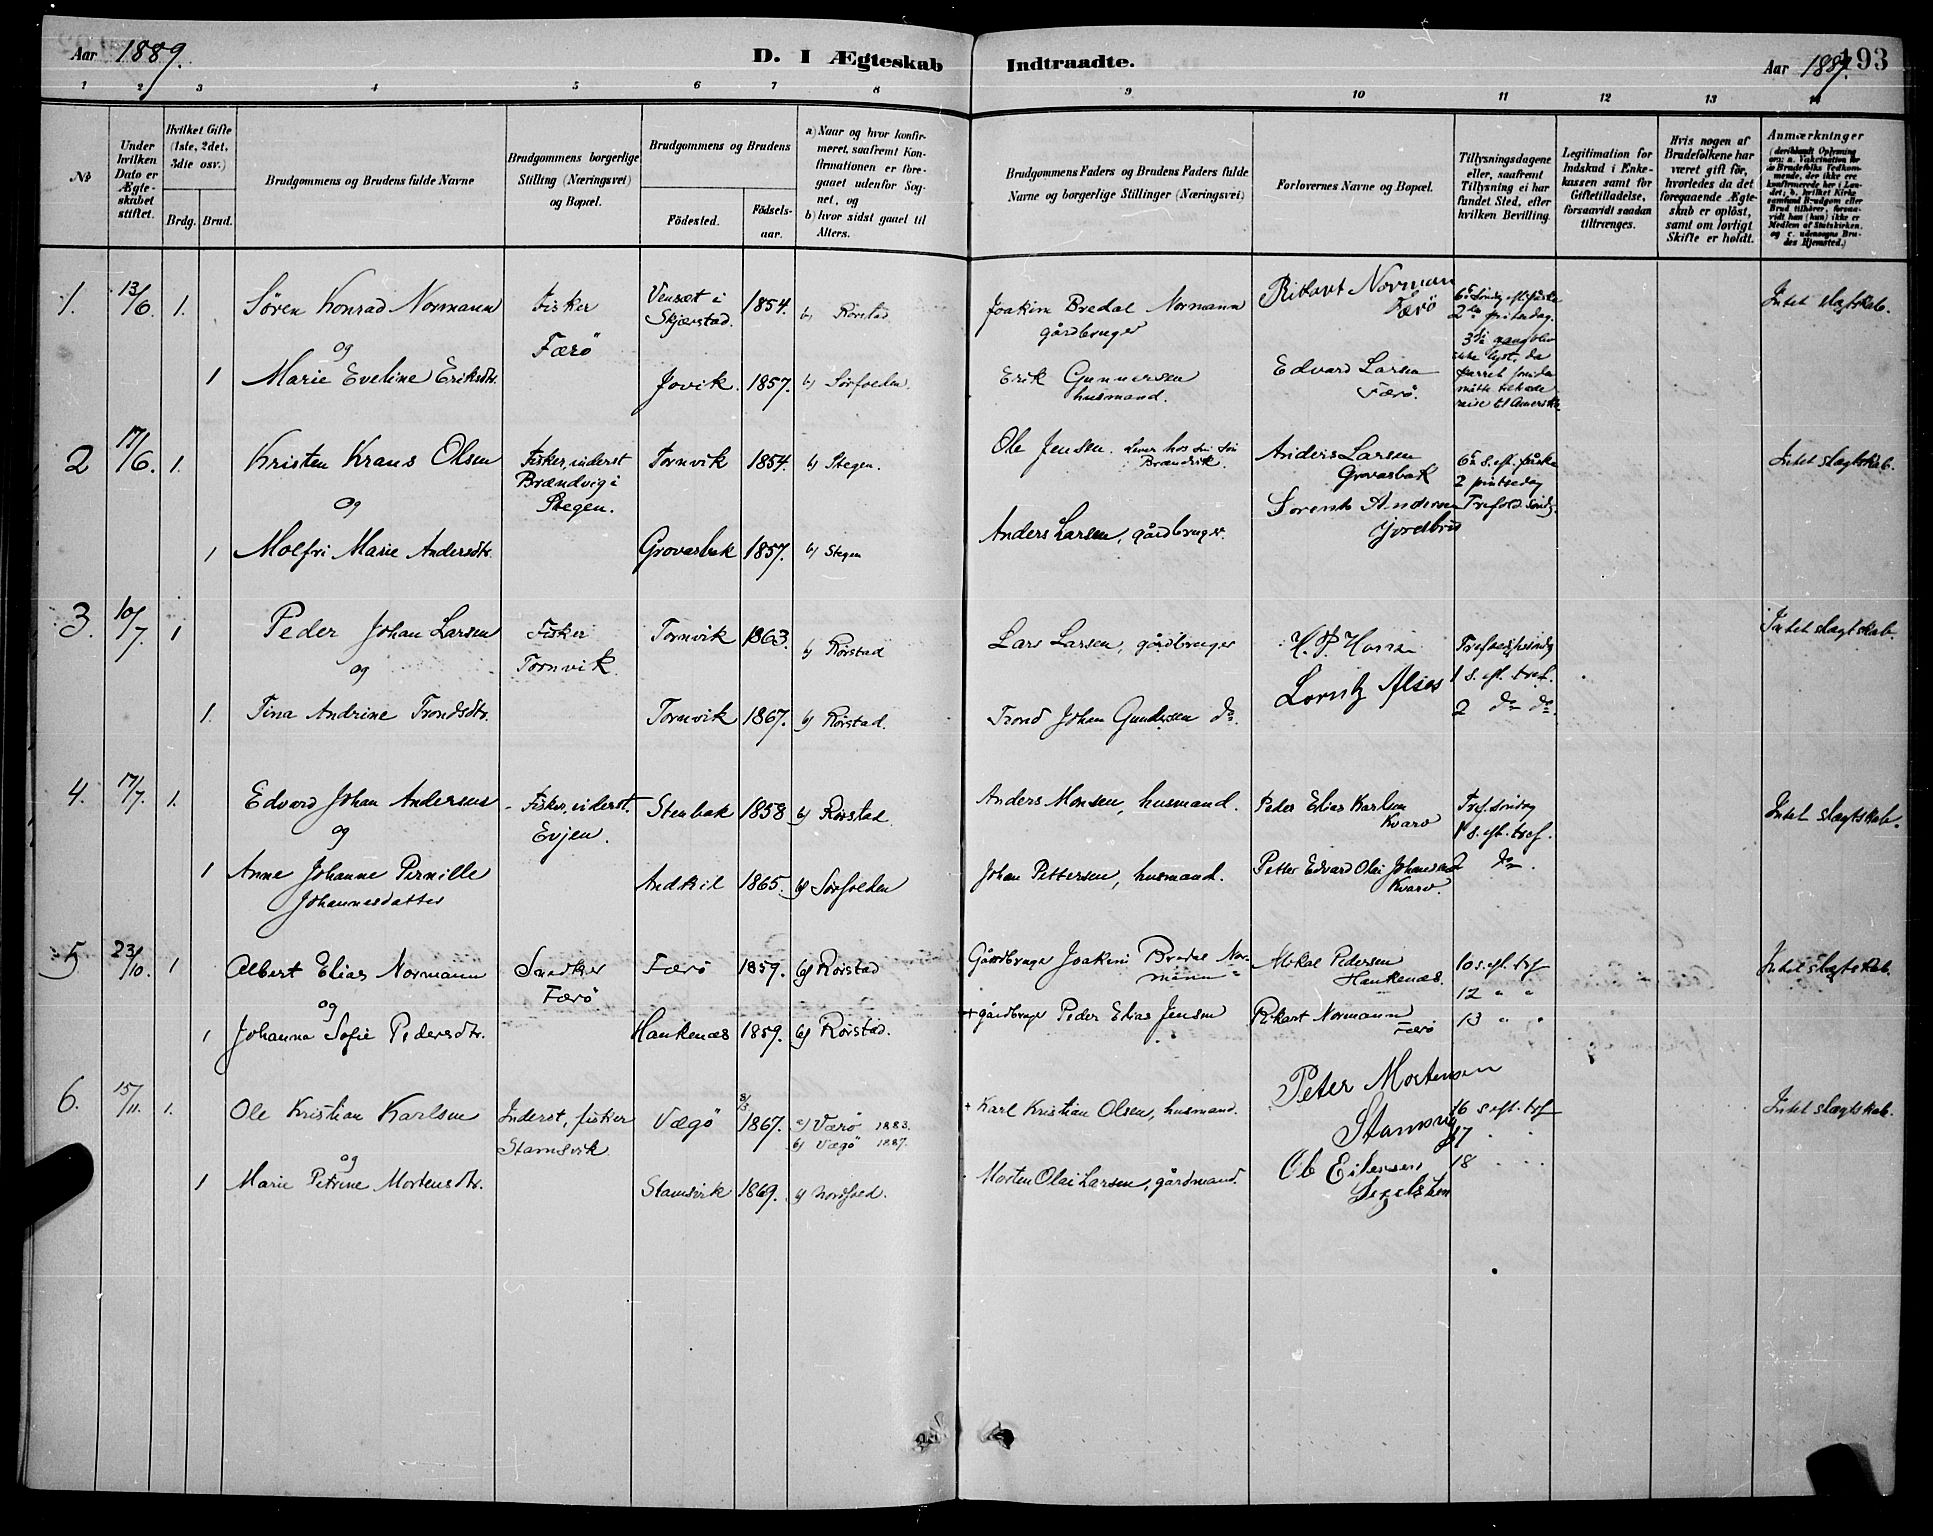 Aar 1889.
D. I Ægteskab Indtraadte.
Aar 1889.
193
1 2 3 4 5 6 7 8 9 10 11 12 13 14
№
Under hvilken Dato er Ægteskabet stiftet.
Hvilket Gifte (1ste, 2det, 3die osv.)
Brdg. Brud.
Brudgommens og Brudens fulde Navne
Brudgommens borgerlige Stilling (Næringsvei) og Bopæl.
Brudgommens og Brudens
Födested.
Födsels-aar.
a) Naar og hvor konfirmeret, saafremt Konfirmationen er foregaaet udenfor Sognet, og
b) hvor sidst gaaet til Alters.
Brudgommens Faders og Brudens Faders fulde Navne og borgerlige Stillinger (Næringsvei)
Forlovernes Navne og Bopæl.
Tillysningsdagene eller, saafremt Tillysning ei har fundet Sted, efter hvilken Bevilling.
Legitimation for Indskud i Enkekassen samt for Giftetilladelse, forsaavidt saadan tiltrænges.
Hvis nogen af Brudefolkene har været gift för, hvorledes da det foregaaende Ægteskab er oplöst, samt om lovligt Skifte er holdt.
Anmærkninger
1. 13/6. 1. Søren Konrad Normann Fisker Færö Vensæt i Skjærstad. 1854. b) Rörstad Joakim Bredal Normann gårdbruger Rikart Norman Færö 6te Söndg eft. påske 2den pintsedag. 3die gang blev ikke lyst, da parret
måtte
reise til Amerika Intet slægtskab.
og
1 Marie Eveline Eriksdtr. Jovik. 1857. b) Sörfolden. Erik Gunnersen husmand. Edvard Larsen Færö.
2 17/6. 1. Kristen Krans Olsen Fisker, inderst Brændvig i Stegen. Tornvik 1854. b) Stegen. Ole Jensen. Lever hos sin sön Brændvik. Anders Larsen Grovasbak 6te s. eft. påske 2 pintsedag Trefold. söndg. Intet slægtskab.
og
1 Molfri Marie Andersdtr. Grovasbak 1857. b) Stegen Anders Larsen, gårdbruger. Sorents Andersen Fjordbrud
3. 10/7. 1 Peder Johan Larsen Fisker Tornvik. Tornvik 1863. b) Rörstad Lars Larsen, gårdbruger H. P. Hansen Trefoldh. söndg 1 s. eft. tref. 2 do do. Intet slægtskab.
og
1. Tina Andrine Trondsdtr. Tornvik 1867. b) Rörstad. Trond Johan Gundersen do. Lorntz Alsos
4. 17/7. 1. Edvard Johan Andersen Fisker, inderst. Evjen. Stenbak 1858 b) Rörstad. Anders Monsen, husmand. Peder Elias Karlsen Kvarv Tref. söndag 1 s. eft. tref. 2 do. Intet slægtskab.
og
1 Anne Johanne Pernille Johannesdatter Andkil 1865. b) Sörfolden Johan Pettersen, husmand. Petter Edvard Olai Johansen Kvarv.
5 23/10. 1 Albert Elias Normann Snedker Færö Færö 1859. b) Rörstad Gårdbruger Joakim Bredal Normann Mikal Pedersen Hankenæs. 10 s. eft. tref 12 " " 13 " " Intet slægtskab.
og
1 Johanna Sofie Pedersdtr. Hankenæs 1859. b) Rörstad. + gårdbruger Peder Elias Jensen Rikart Normann Færö
6. 15/11. 1. Ole Kristian Karlsen Inderst, fisker Stamsvik Vægö 8/3 1867. a) Værö 1883. b) Vægö 1887. + Karl Kristian Olsen, husmand. Peter Mortensen Stamsvig 16 s. eft. tref 17 " " 18 " " Intet slægtskab.
og
1 Marie Petrine Mortensdtr. Stamsvik 1869. b) Nordfold. Morten Olai Larsen, gårdmand. Ole Eilersen